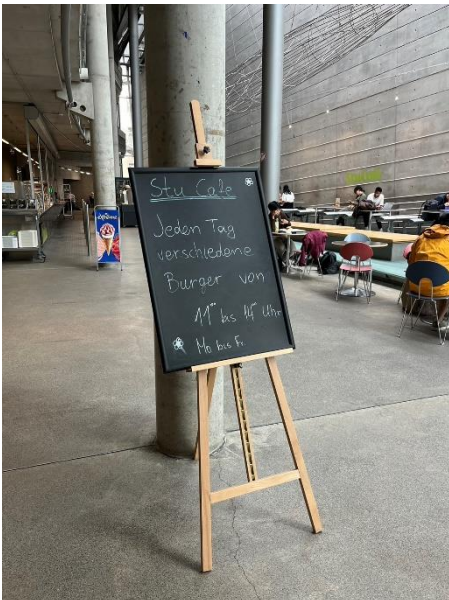 Stu Café
Jeden Tag
verschiedene
Burger von
11°° bis 14°° Uhr
Mo bis Fr